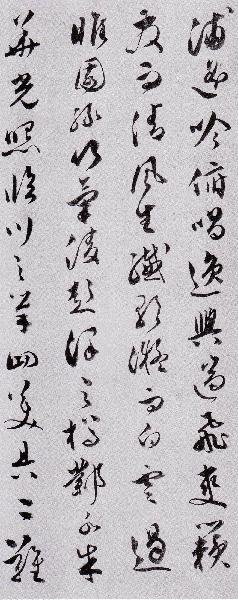 浦遥吟俯唱逸興遄飛爽籟
發而清風生纖歌凝而白雲遏
睢園綠竹氣凌彭澤之樽鄴水朱
華光照臨川之筆四美具二難